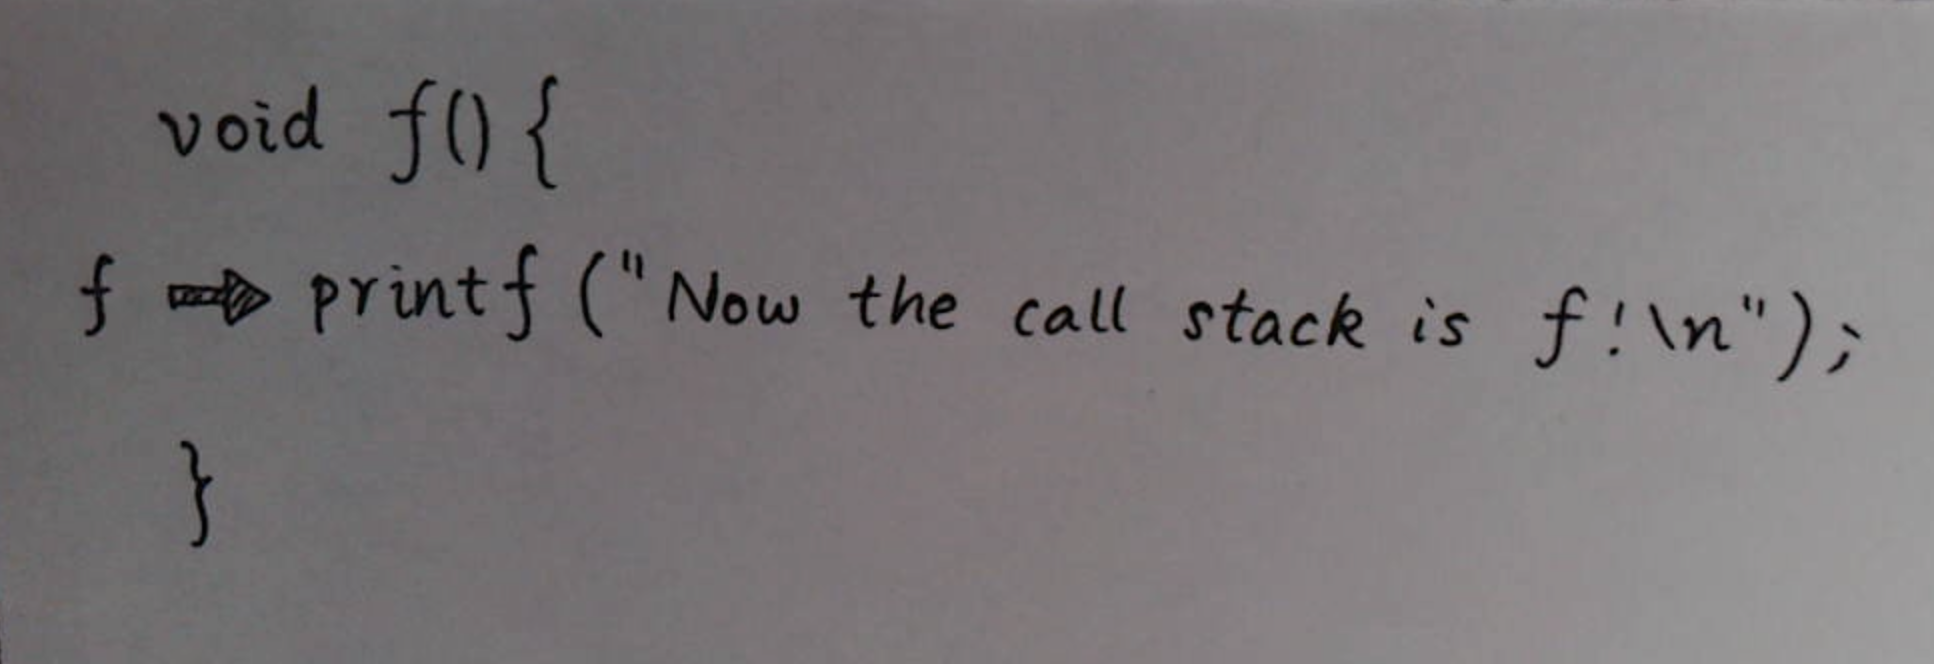 void f() {
f ⇒ printf ("Now the call stack is f!\n");
}